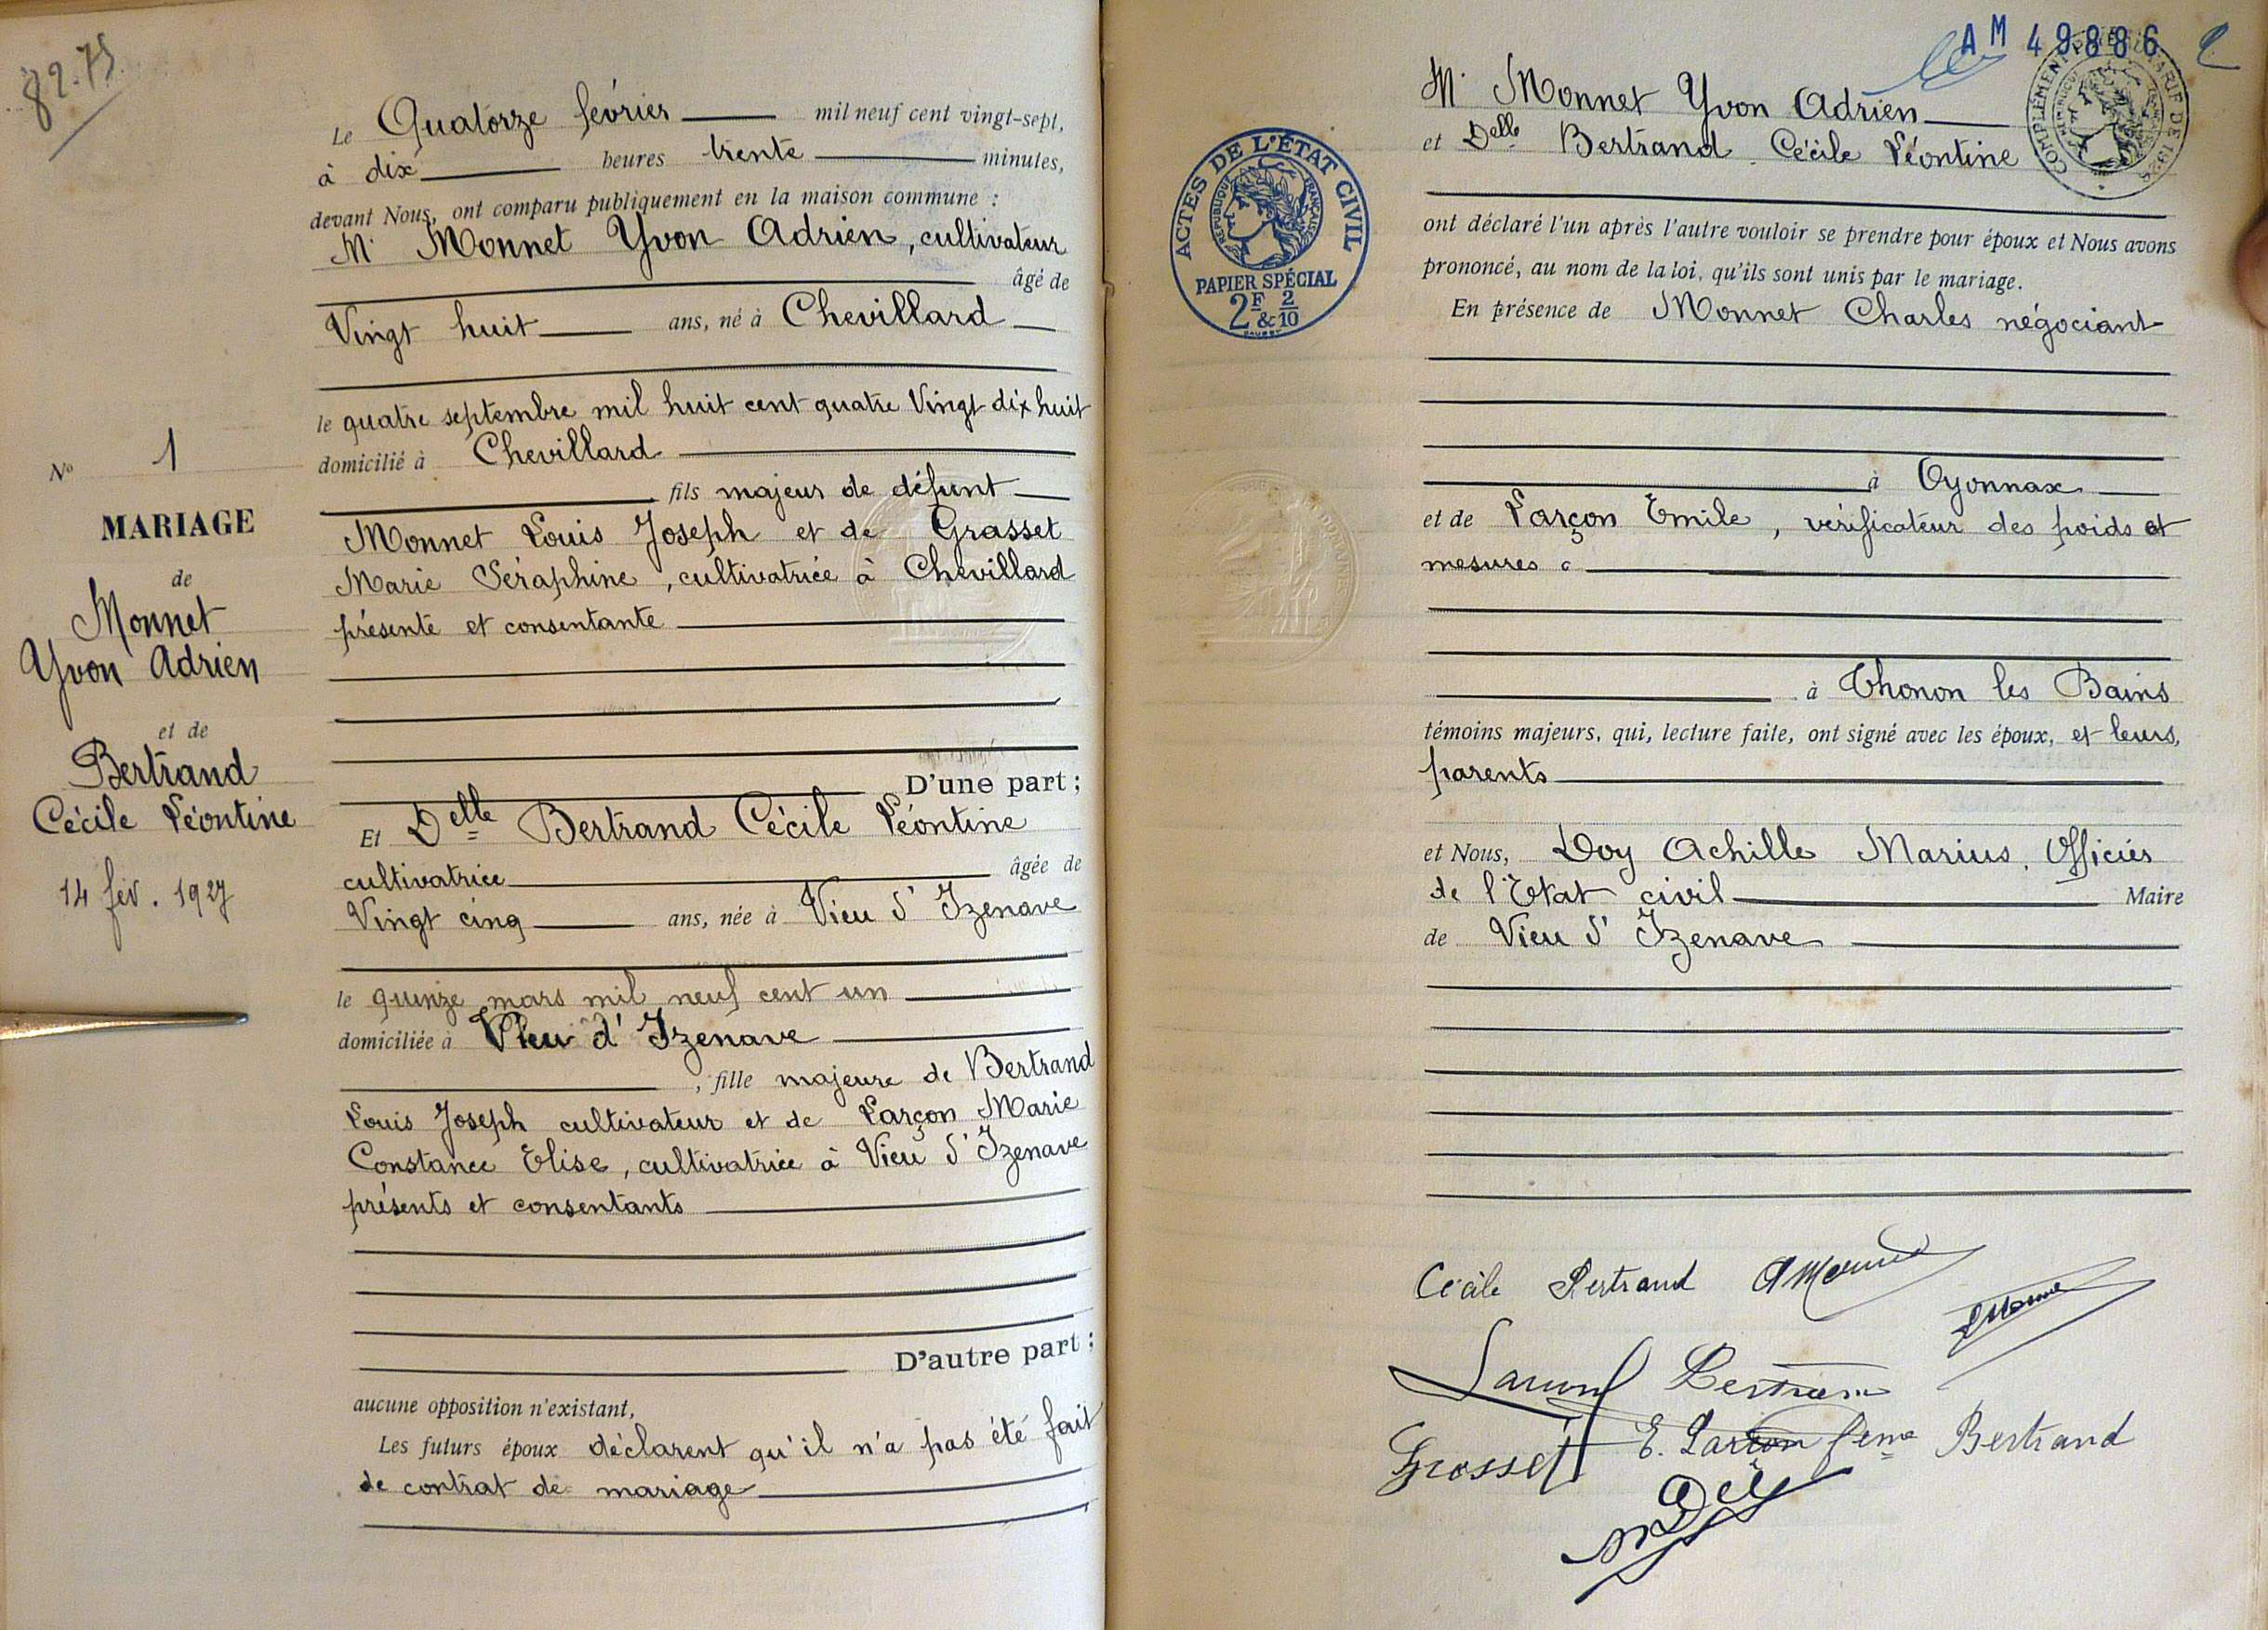 82.75
Le Quatorze février mil neuf cent vingt-sept,
à dix heures trente minutes,
devant Nous, ont comparu publiquement en la maison commune :
M. Monnet Yvon Adrien, cultivateur
âgé de
Vingt huit ans, né à Chevillard
le quatre septembre mil huit cent quatre Vingt dix huit
domicilié à Chevillard
fils majeur de défunt
Monnet Louis Joseph et de Grasset
Marie Séraphine, cultivatrice à Chevillard
présente et consentante
D'une part ;
Et Delle Bertrand Cécile Léontine
cultivatrice âgée de
Vingt cinq ans, née à Vieu d'Izenave
le quinze mars mil neuf cent un
domiciliée à Vieu d'Izenave
, fille majeure de Bertrand
Louis Joseph cultivateur et de Larçon Marie
Constance Elise, cultivatrice à Vieu d'Izenave
présents et consentants
D'autre part ;
aucune opposition n'existant,
Les futurs époux déclarent qu'il n'a pas été fait
de contrat de mariage
No 1
MARIAGE
de
Monnet
Yvon Adrien
et de
Bertrand
Cécile Léontine
14 fév. 1927
AM 49886
2
COMPLÉMENT
ACTES DE L'ÉTAT CIVIL
RÉPUBLIQUE FRANÇAISE
PAPIER SPÉCIAL
2F & 2/10
M. Monnet Yvon Adrien
et Delle Bertrand Cécile Léontine
ont déclaré l'un après l'autre vouloir se prendre pour époux et Nous avons
prononcé, au nom de la loi, qu'ils sont unis par le mariage.
En présence de Monnet Charles négociant
à Oyonnax
et de Larçon Emile, vérificateur des poids et
mesures
à Thonon les Bains
témoins majeurs, qui, lecture faite, ont signé avec les époux, et leurs,
parents
et Nous, Doy Achille Marius, Officier
de l'Etat civil Maire
de Vieu d'Izenave
Cécile Bertrand A Monnet
Larçon Bertrand
Grosset E. Larçon feme Bertrand